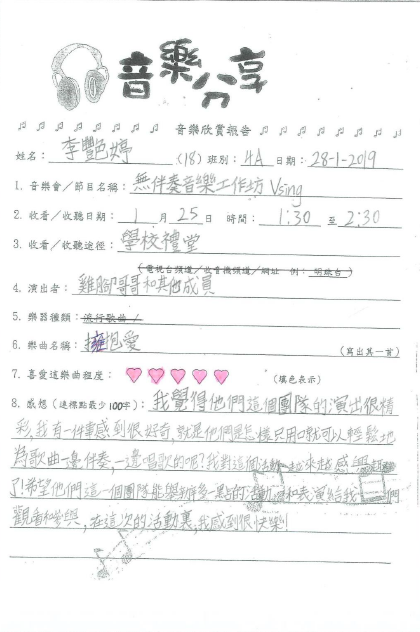 音樂分享
音樂欣賞報告
姓名：李艷婷 (18) 班別：4A 日期：28-1-2019
1. 音樂會／節目名稱：無伴奏音樂工作坊 Vsing
2. 收看／收聽日期：1 月 25 日 時間：1:30 至 2:30
3. 收看／收聽途徑：學校禮堂
(電視台頻道／收音機頻道／網址 例：明珠台)
4. 演出者：雞腳哥哥和其他成員
5. 樂器種類：流行歌曲／
6. 樂曲名稱：擁抱愛 (寫出其一首)
7. 喜愛這樂曲程度： (填色表示)
8. 感想(連標點最少100字)：我覺得他們這個團隊的演出很精
彩，我有一件事感到很好奇，就是他們是怎樣只用口就可以輕鬆地
為歌曲一邊伴奏，一邊唱歌的呢？我對這個活動越來越感興趣
了！希望他們這一個團隊能舉辦多一點的活動和表演給我們
觀看和參與，在這次的活動裏，我感到很快樂！